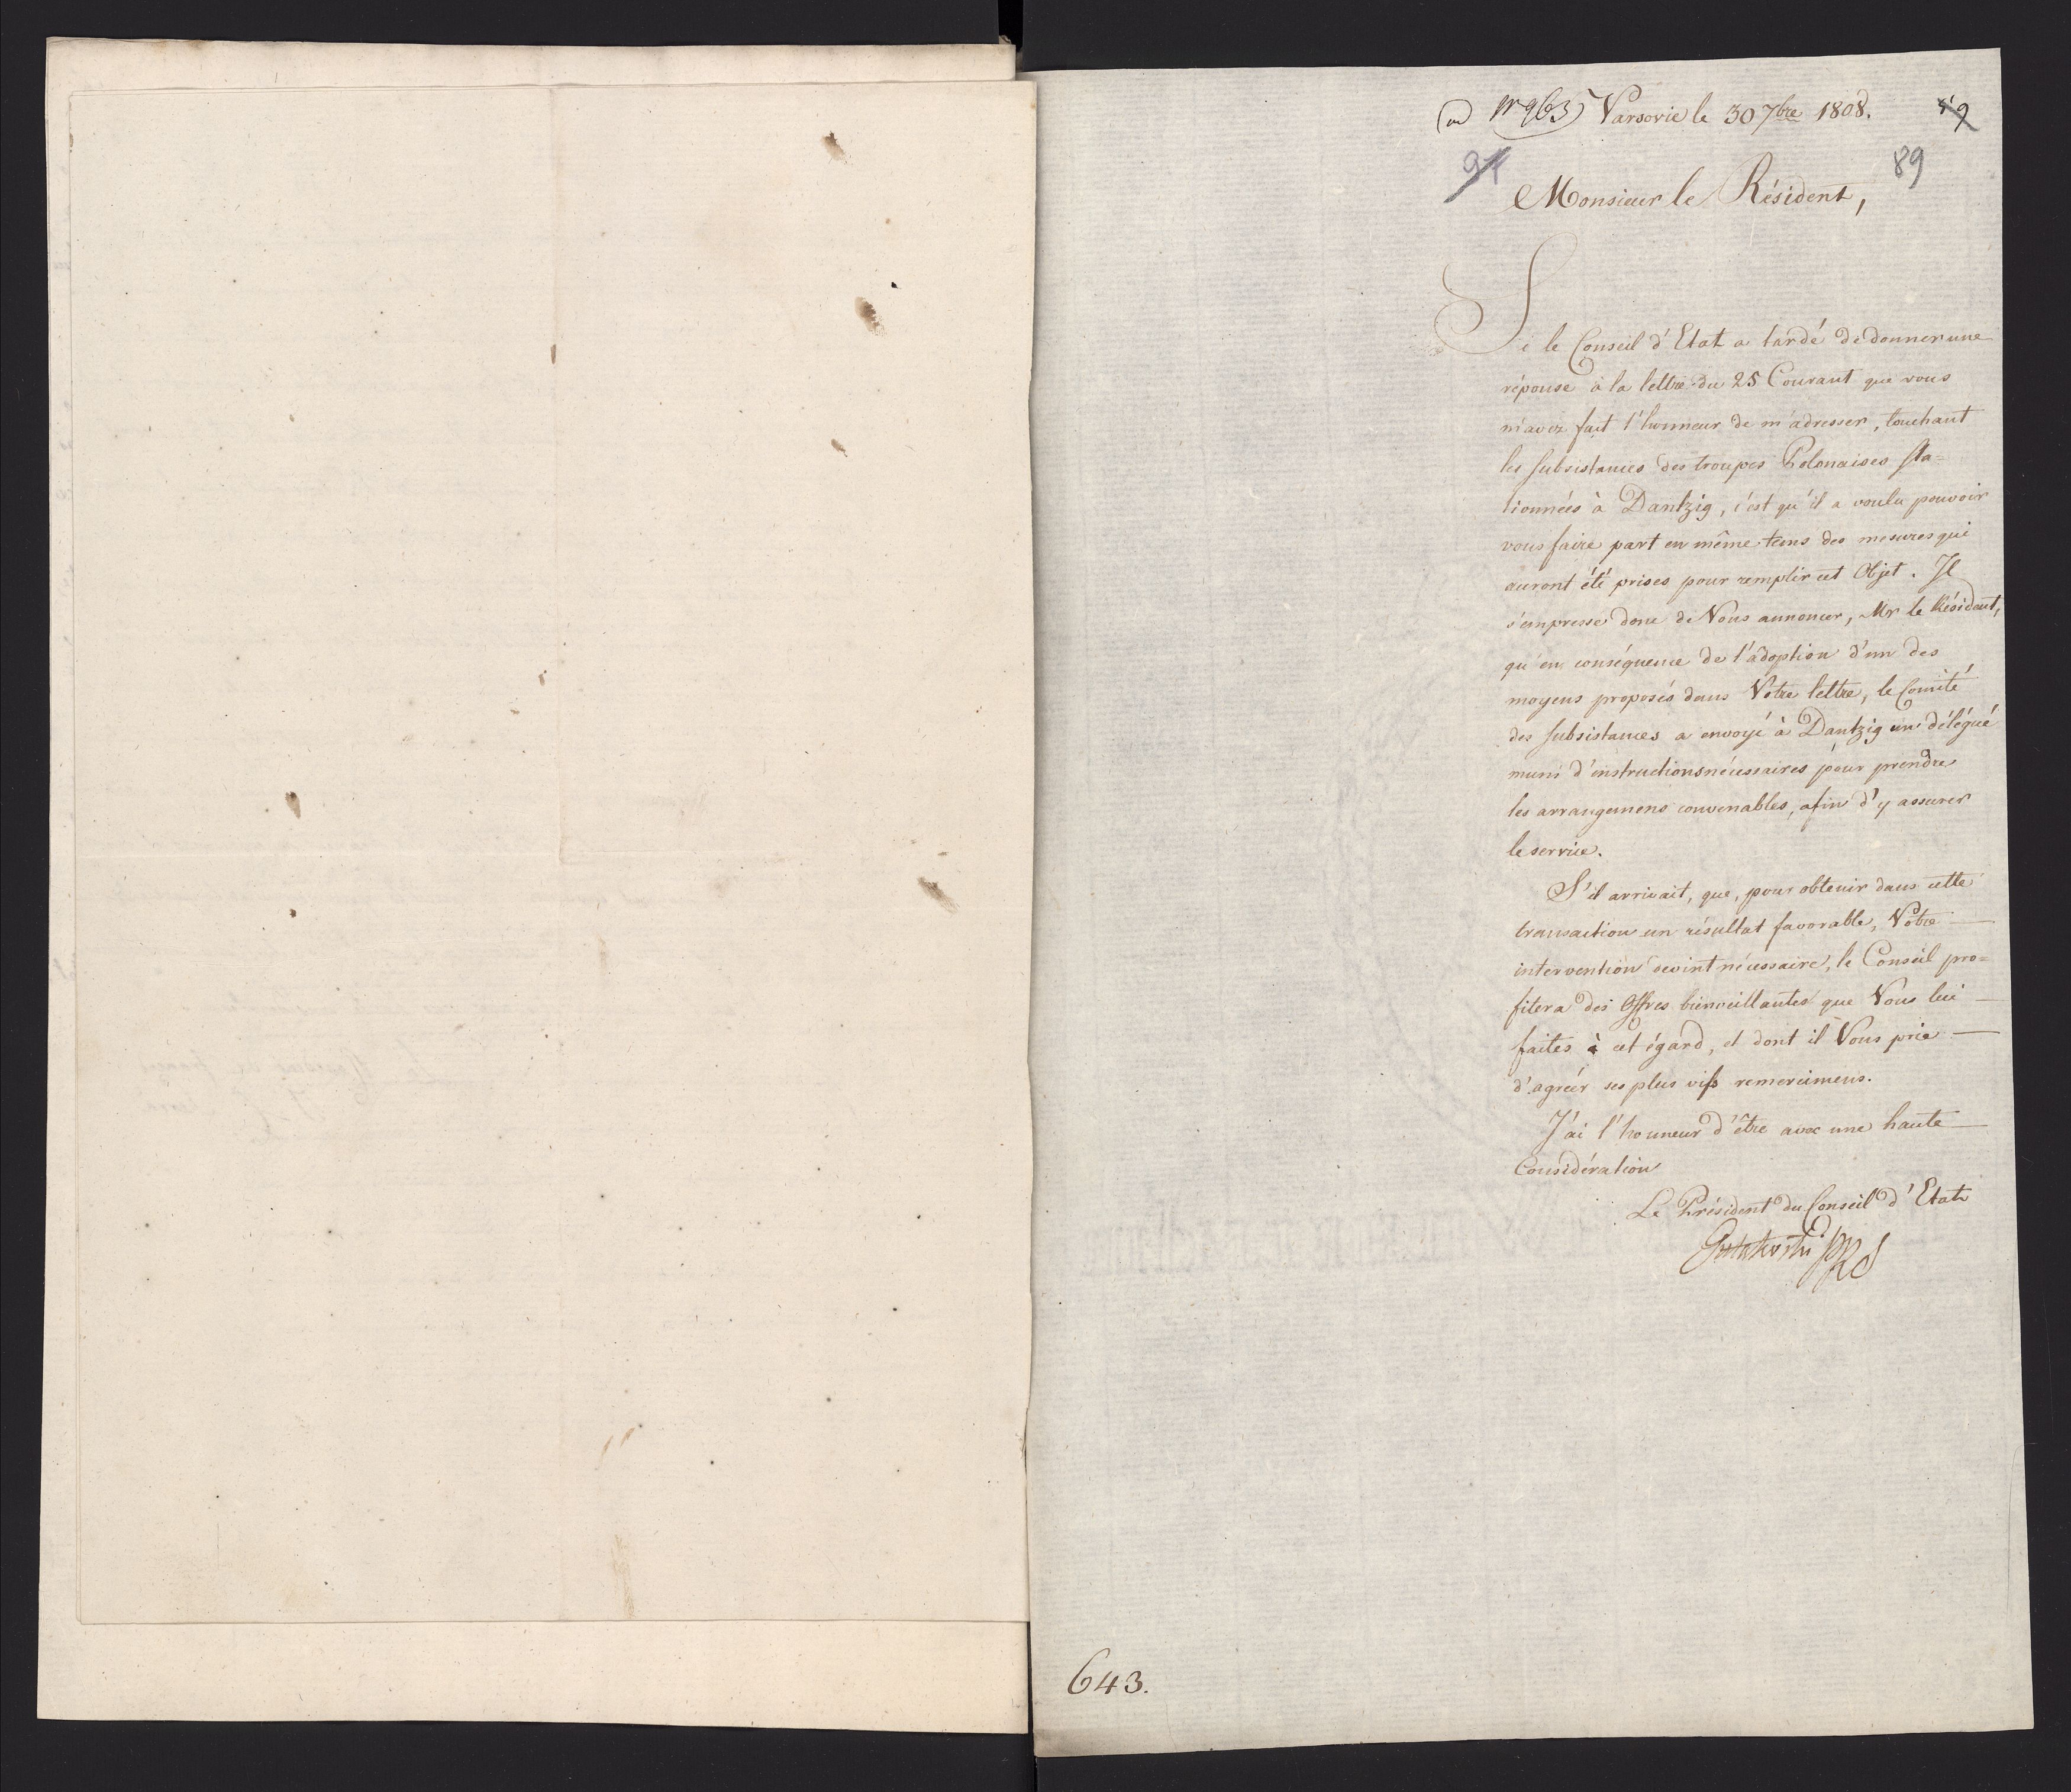 ad Nr 963 Varsovie le 30 7bre 1808.
89
Monsieur le Résident,
Si le Conseil d'Etat a tardé de donner une
réponse à la lettre du 25 Courant que vous
m'avez fait l'honneur de m'adresser, touchant
les subsistances des troupes Polonaises sta=
tionnées à Dantzig, c'est qu'il a voulu pouvoir
vous faire part en même tems des mesures qui
auront été prises pour remplir cet Objet. Il
s'empresse donc de Vous annoncer, Mr le Résident,
qu'en conséquence de l'adoption d'un des
moyens proposés dans Votre lettre, le Comité
des subsistances a envoyé à Dantzig un délégué
muni d'instructions nécessaires pour prendre
les arrangemens convenables, afin d'y assurer
le service.
S'il arrivait, que, pour obtenir dans cette
transaction un résultat favorable, Votre
intervention devint nécessaire, le Conseil pro=
fitera des Offres bienveillantes que Vous lui
faites à cet égard, et dont il Vous prie
d'agréer ses plus vifs remercimens.
J'ai l'honneur d'être avec une haute
Considération
Le Président du Conseil d'Etat
643.